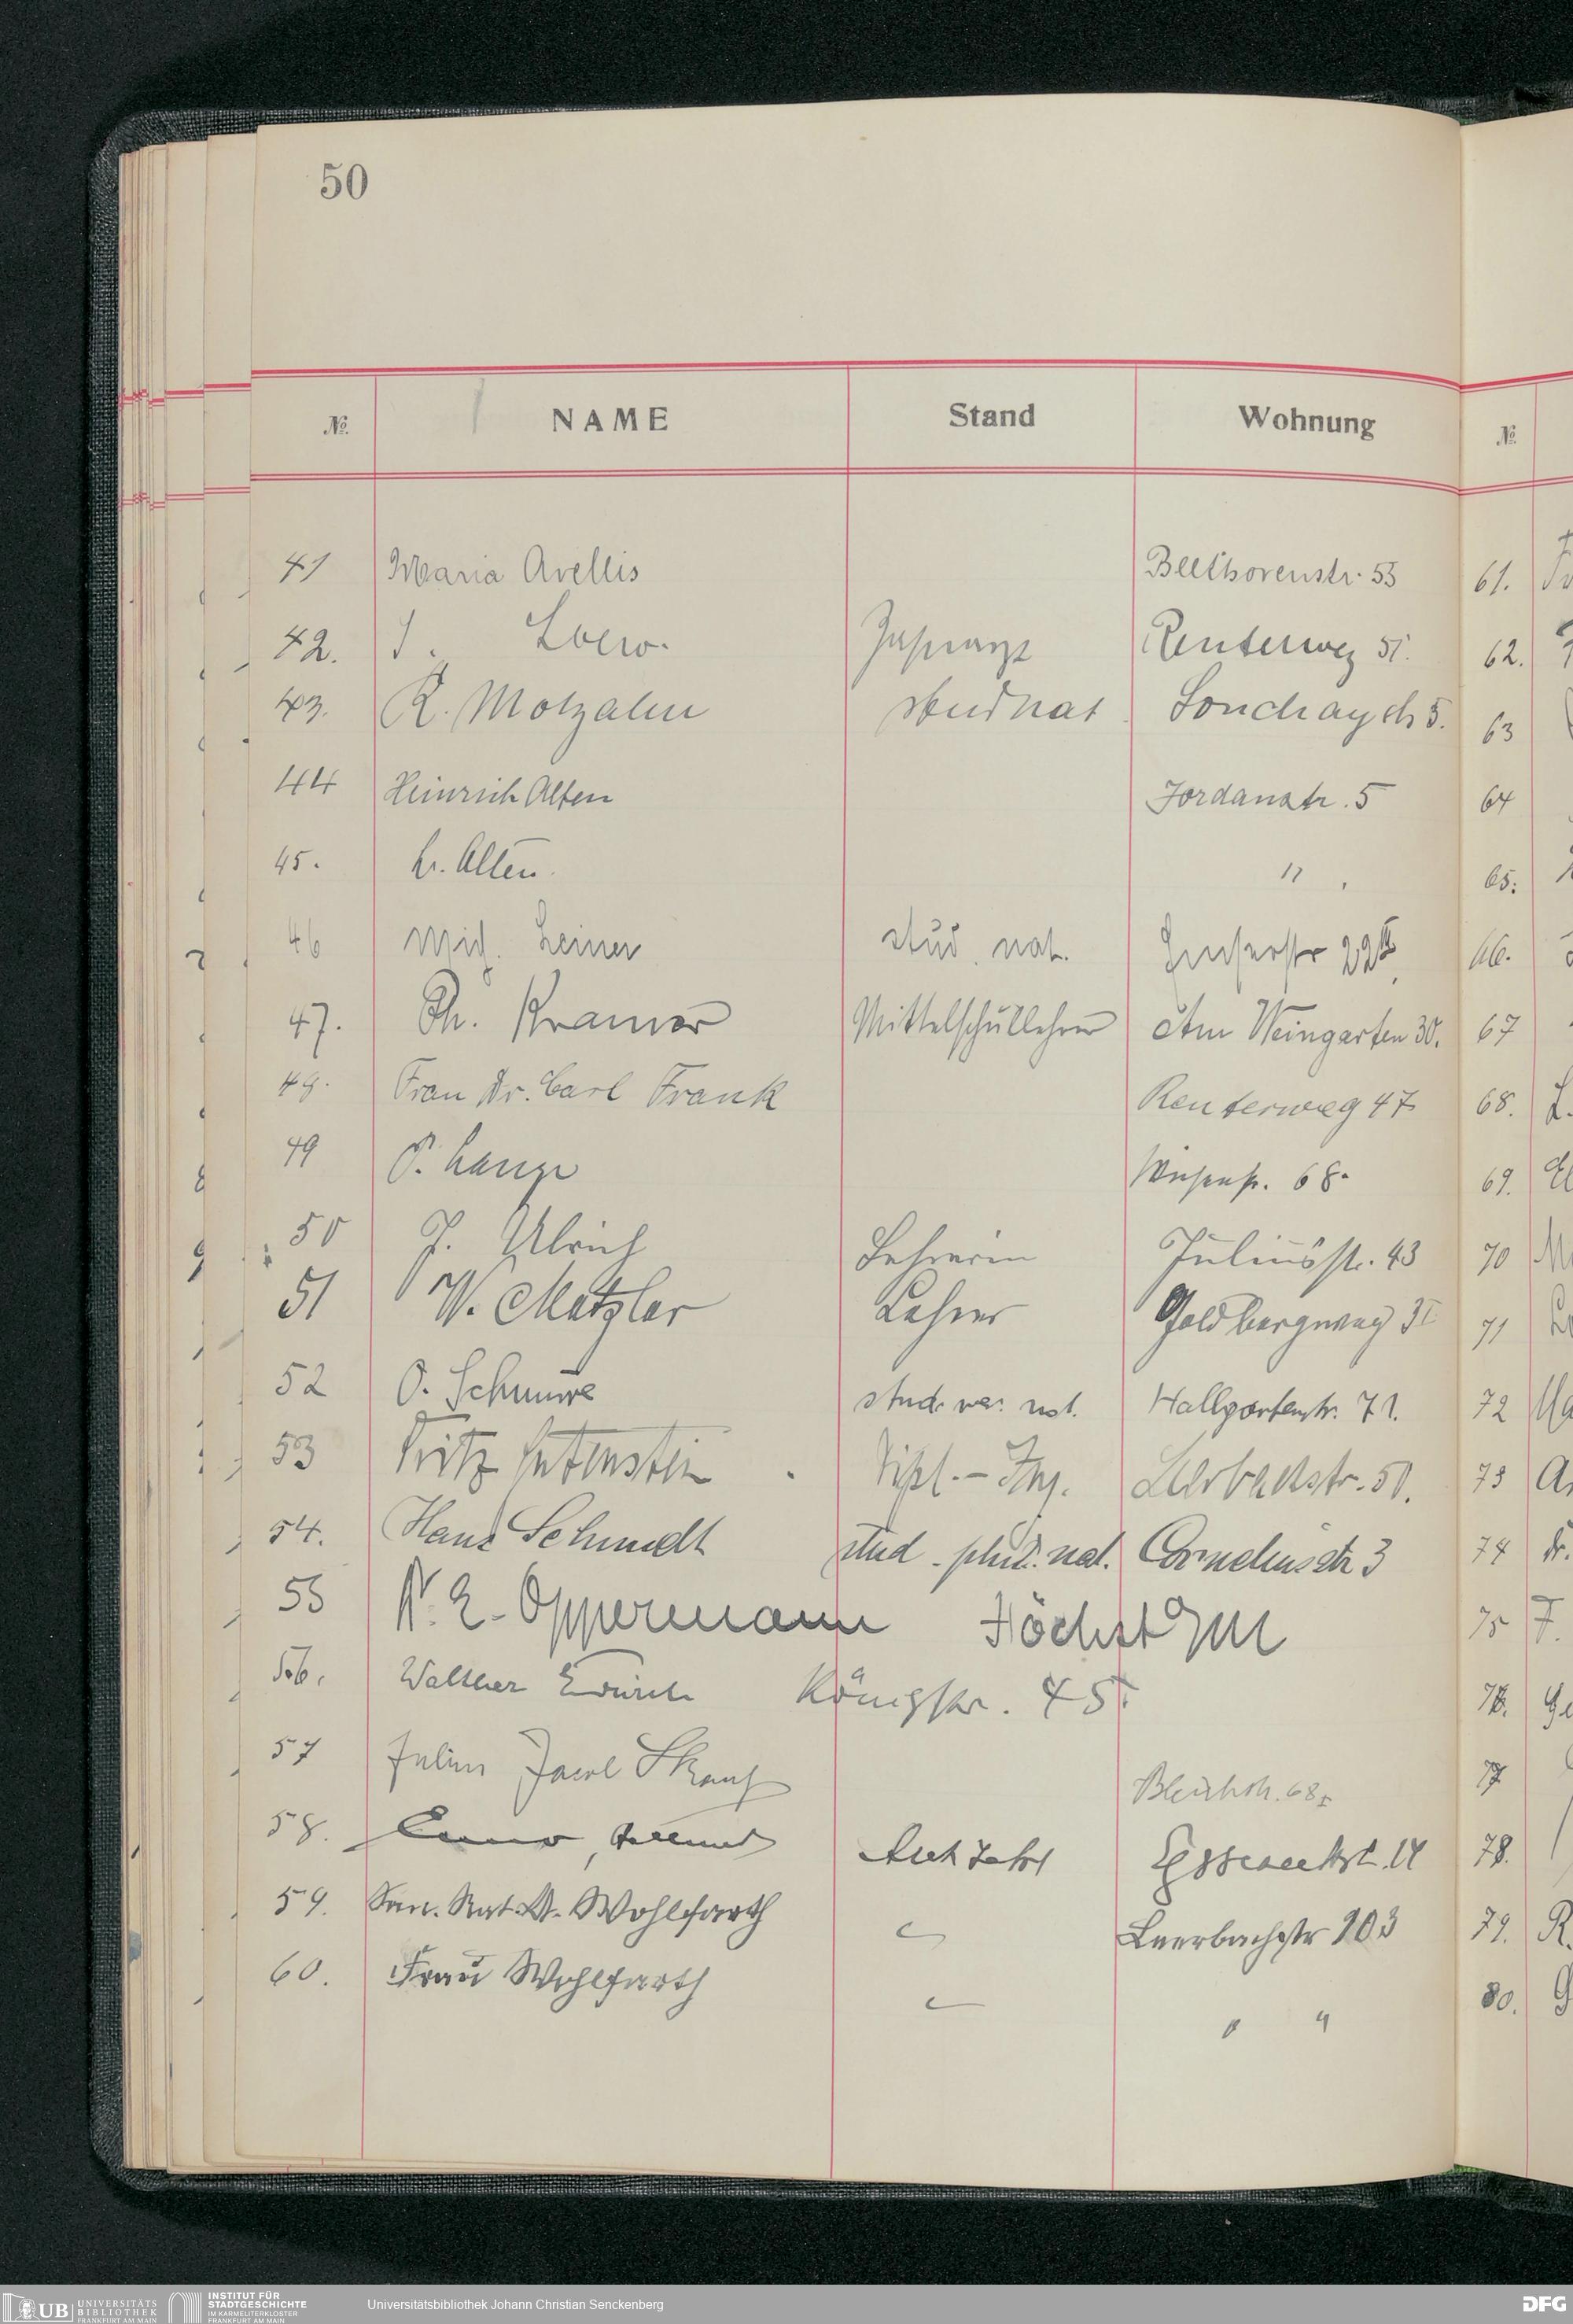 50
№ NAME Stand Wohnung №
41 Maria Avellis Beethovenstr. 55 61.
42. S. Loew. Zahnarzt Reuterweg 51. 62.
43. R. Motzalin stud nat 5. 63
44 Heinrich Alten Jordanstr. 5 64
45. Alten. " 65.
46 Mich. Leiner stud. nat. 66.
47. Ph. Kramer Mittelschullehrer Am Weingarten 30. 67
48. Frau Dr. Carl Frank Reuterweg 47 68.
49 P. Lange Wiesenstr. 68. 69.
50 J. Ulrich Lehrerin Juliusstr. 43 70
51 W. Metzler Lehrer Goldbergweg 71
52 O. Schnurre stud. rer. nat. Hallgartenstr. 71. 72
53 Fritz Dipl.-Ing. Leerbachstr. 50. 73
54. Hans Schmidt stud. phil. nat. Corneliusstr 3 74
55 E. Oppermann Höchst 75
56. Walther Königstr. 45. 76.
57 Julius Jacob Strauß Bleichstr. 68 77
58. 14 78.
59. San. Rat. Wohlfarth Leerbachstr 103 79. R.
60. Frau Wohlfarth " " 80.
UB UNIVERSITÄTS
BIBLIOTHEK
FRANKFURT AM MAIN
INSTITUT FÜR
STADTGESCHICHTE
IM KARMELITERKLOSTER
FRANKFURT AM MAIN
Universitätsbibliothek Johann Christian Senckenberg
DFG